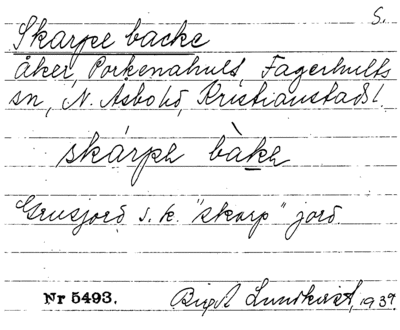 S.
Skarpe backe
Åker, Porkenahult, Fagerhults
sn, N. Åsbo hd, Kristianstads l.
skárpə bàkə
Grusjord s.k. "skarp" jord.
Nr 5493. Birgit Lundkvist, 1939.